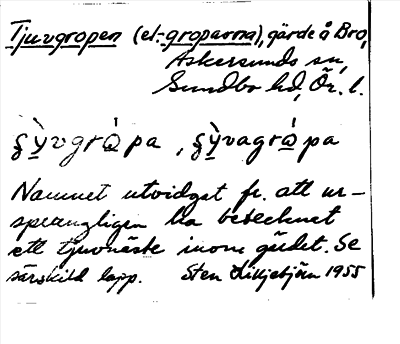 Tjuvgropen (el. -groparna), gärde å Bro,
Askersunds sn,
Sundbo hd, Ör. l.
ʂỳvgrópa, ʂỳvagrópa
Namnet utvidgat fr. att ur-
sprungligen ha betecknat
ett tjuvnäste inom gärdet. Se
särskild lapp. Sten Liljebjörn 1955